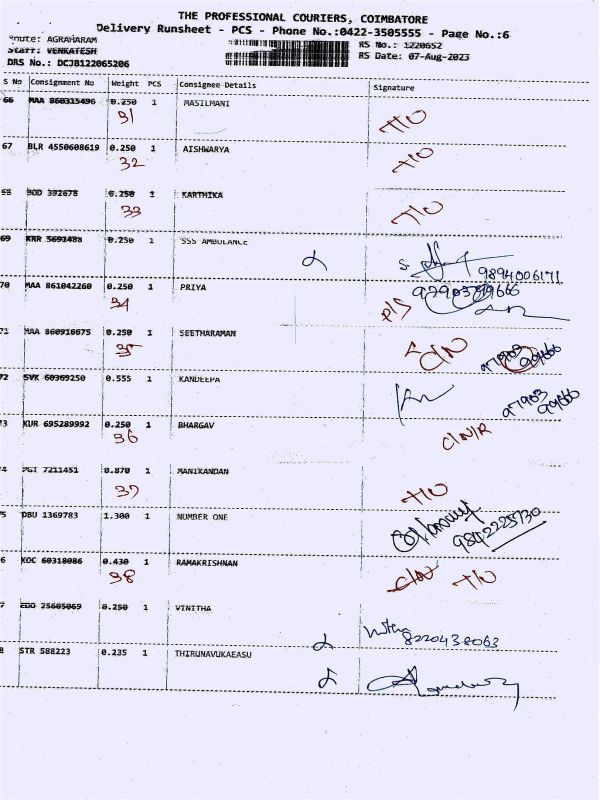 THE PROFESSIONAL COURIERS, COIMBATORE
Delivery Runsheet - PCS - Phone No.:0422-3505555 - Page No.:6
Route: AGRAHARAM
RS No.: 1220652
Staff: VENKATESH
RS Date: 07-Aug-2023
DRS No.: DCJB122065206
S No Consignment No Weight PCS Consignee Details Signature
66 MAA 860315496 0.250 1 MASILMANI
31 T/O
67 BLR 4550608619 0.250 1 AISHWARYA
32 T/O
68 BOD 392678 0.250 1 KARTHIKA
33 T/O
69 KRR 5691488 0.250 1 SSS AMBULANCE
9894006171
70 MAA 861042260 0.250 1 PRIYA
34 P/S
71 MAA 860916675 0.250 1 SEETHARAMAN
35 C/N
72 SVK 60369250 0.555 1 KANDEEPA
97903
99666
73 KUR 695289992 0.250 1 BHARGAV
36 C/N/R
74 PGI 7211451 0.870 1 MANIKANDAN
37 T/O
5 DBU 1369783 1.300 1 NUMBER ONE
9842225730
6 KOC 60318086 0.430 1 RAMAKRISHNAN
38 C/N T/O
7 EDD 25605069 0.250 1 VINITHA
8220436063
8 STR 588223 0.235 1 THIRUNAVUKAEASU